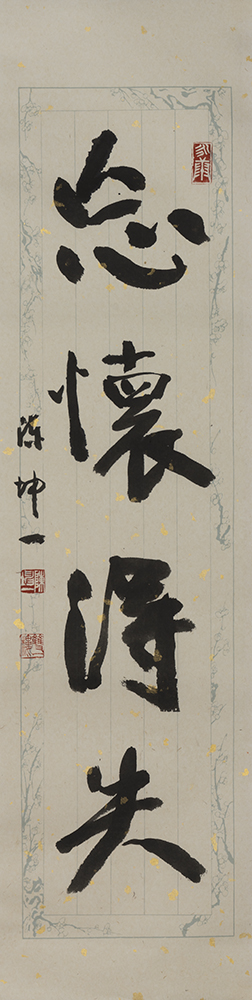 忘懷得失
陳坤一